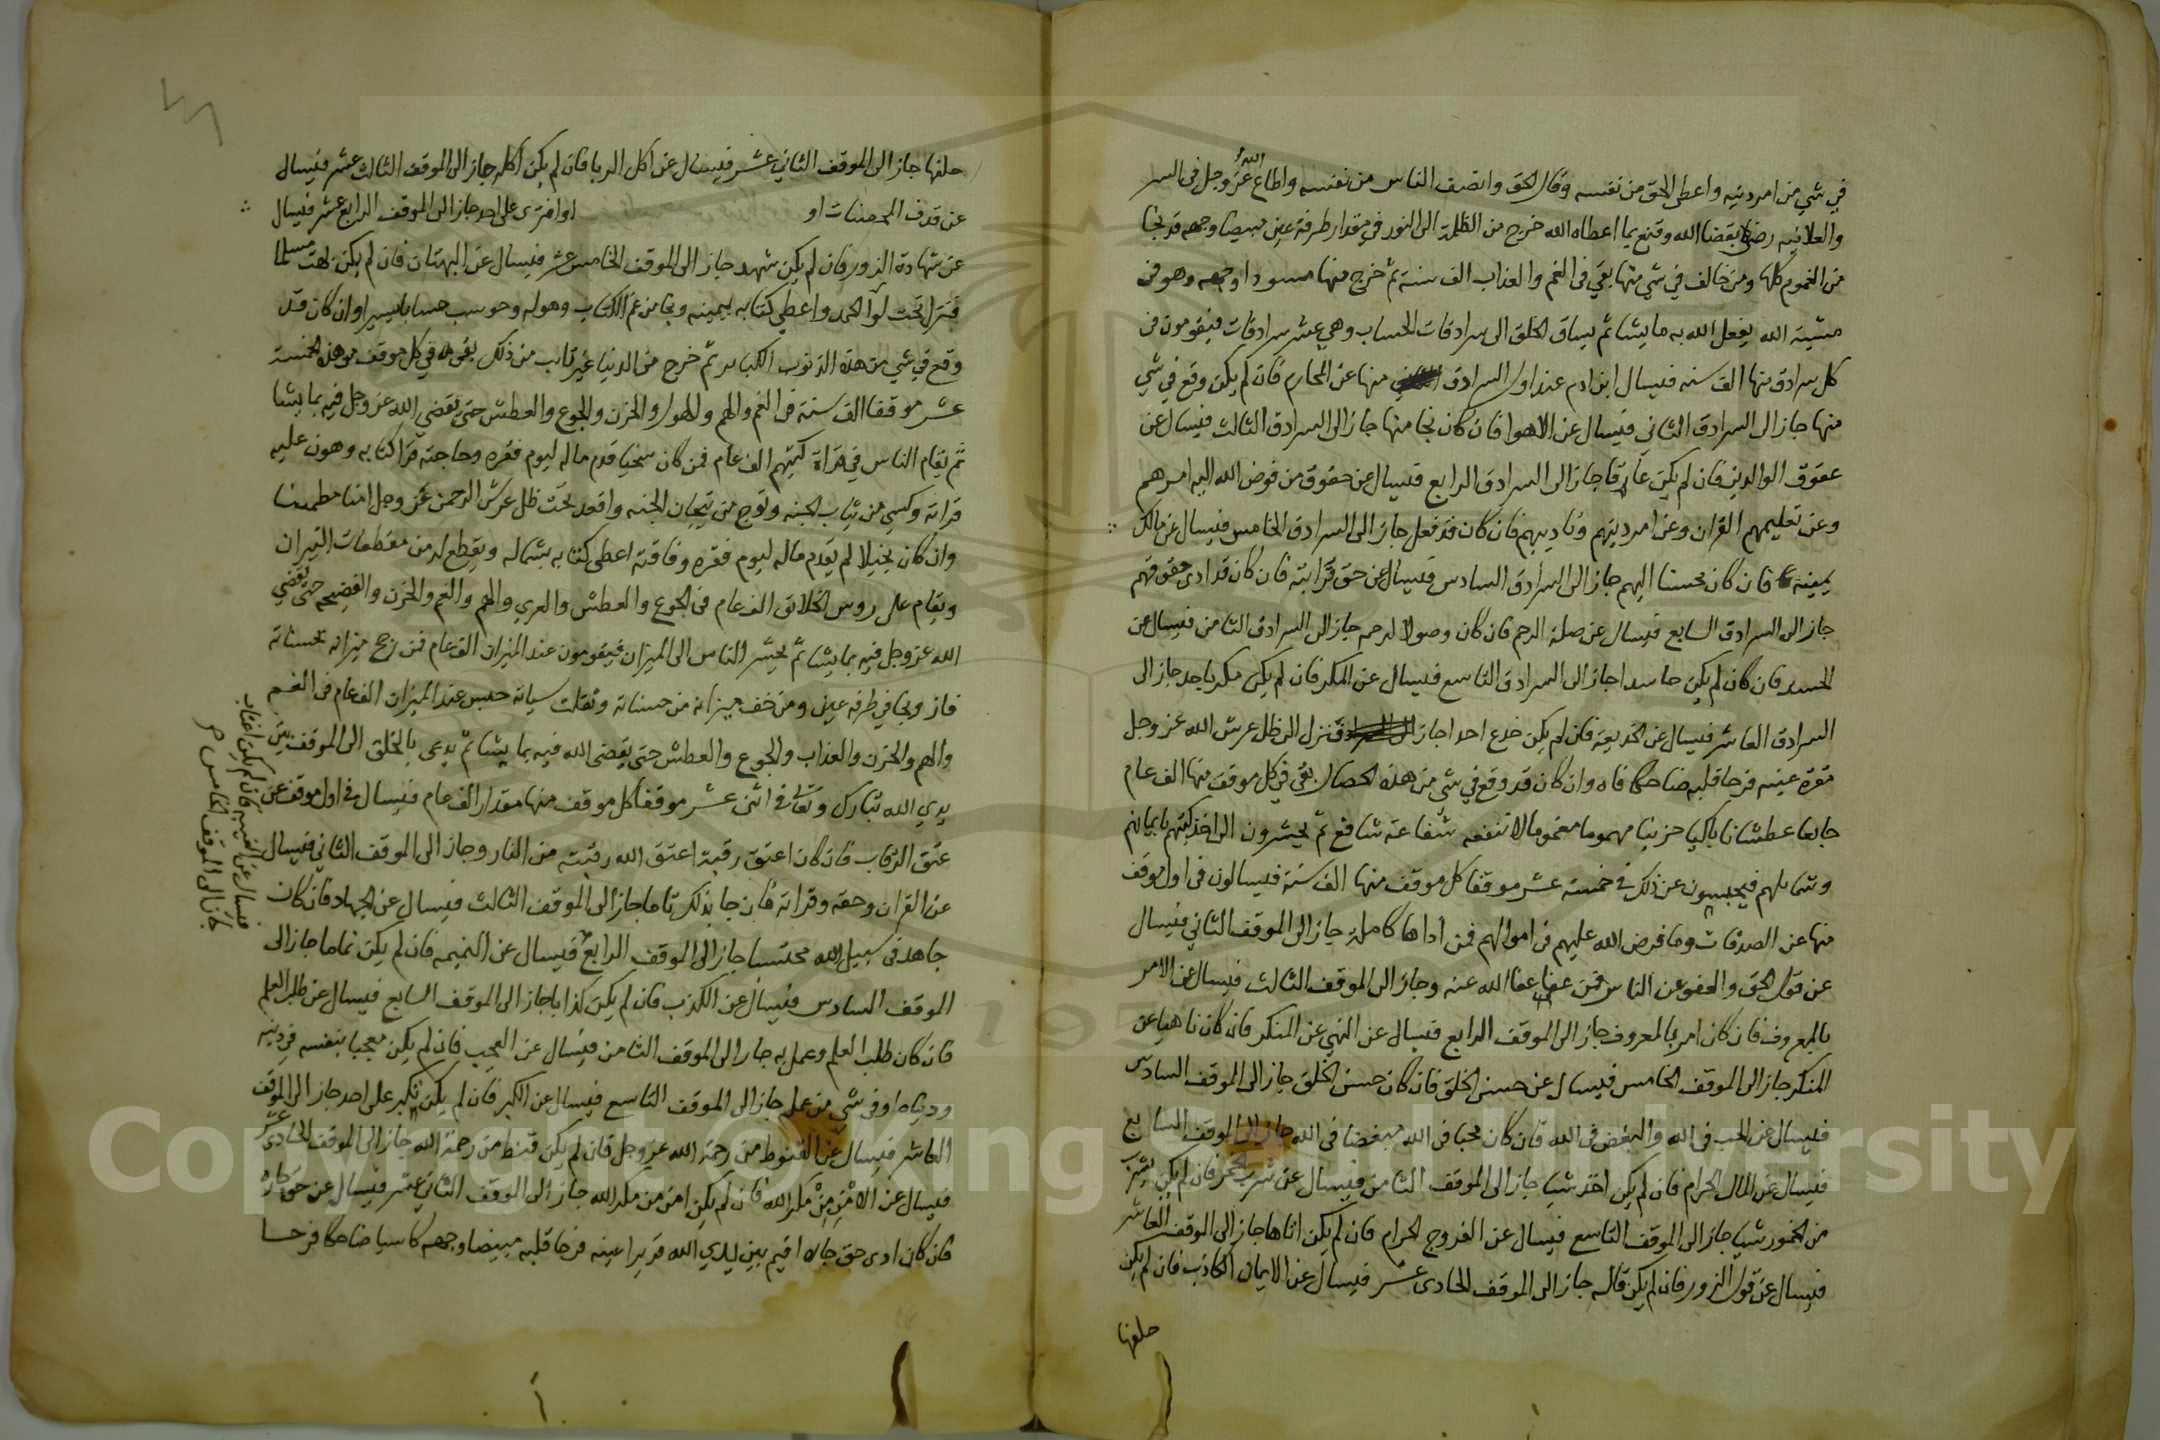 في شي من امر دينه واعطى الحق من نفسه وقال الحق وانصف الناس من نفسه واطاع الله عز وجل في السر
والعلانيه رضي بقضا الله وقنع بما اعطاه الله خرج من الظلمة الى النور في مقدار طرفة عين مبيضا وجهه قد نجا
من الغموم كلها ومن خالف في شي منها بقي في الغم والعذاب الف سنة ثم خرج منها مسودا وجهه وهو في
مشية الله يفعل الله به ما يشا ثم يساق الخلق الى سرادقات الحساب وهي عشر سرادقات فيقومون في
كل سرادق منها الف سنه فيسال ابن ادم عند اول السرادق منها عن المحارم فان لم يكن وقع في شي
منها جاز الى السرادق الثاني فيسال عن الاهوا فان كان نجا منها جاز الى السرادق الثالث فيسال عن
عقوق الوالدين فان لم يكن عاقا جاز الى السرادق الرابع فيسال عن حقوق من فوض الله اليه امرهم
وعن تعليمهم القران وعن امر دينهم وتاديبهم فان كان قد فعل جاز الى السرادق الخامس فيسال عن مالك
يمينه فان كان محسنا اليهم جاز الى السرادق السادس فيسال عن حق قرابته فان كان قد ادى حقوقهم
جاز الى السرادق السابع فيسال عن صلة الرحم فان كان وصولا لرحمه جاز الى السرادق الثامن فيسال عن
الحسد فان كان لم يكن حاسدا جاز الى السرادق التاسع فيسال عن المكر فان لم يكن مكر باحد جاز الى
السرادق العاشر فيسال عن الخديعة فان لم يكن خدع احدا جاز فنزل الى ظل عرش الله عز وجل
مقرة عينه فرحا قلبه ضاحكا فاه وان كان قد وقع في شي من هذه الخصال بقي في كل موقف منها الف عام
جايعا عطشانا باكيا حزينا مهموما مغموما لا تنفعه شفاعة شافع ثم يحشرون الى اخذ كتبهم بايمانهم
وشمايلهم فيحبسون عن ذلك في خمسة عشر موقفا كل موقف منها الف سنة فيسالون في اول موقف
منها عن الصدقات وما فرض الله عليهم في اموالهم فمن اداها كاملة جاز الى الموقف الثاني فيسال
عن قول الحق والعفو عن الناس فمن عفا عفا الله عنه وجاز الى الموقف الثالث فيسال عن الامر
بالمعروف فان كان امر بالمعروف جاز الى الموقف الرابع فيسال عن النهي عن المنكر فان كان ناهيا عن
المنكر جاز الى الموقف الخامس فيسال عن حسن الخلق فان كان حسن الخلق جاز الى الموقف السادس
فيسال عن الحب في الله والبغض في الله فان كان محبا في الله مبغضا في الله جاز الى الموقف السابع
فيسال عن المال الحرام فان لم يكن اخذ شيا جاز الى الموقف الثامن فيسال عن شرب الخمر فان لم يكن شرب
من الخمور شيا جاز الى الموقف التاسع فيسال عن الفروج الحرام فان لم يكن اتاها جاز الى الموقف العاشر
فيسال عن قول الزور فان لم يكن قاله جاز الى الموقف الحادي عشر فيسال عن الايمان الكاذب فان لم يكن
حلفها
حلفها جاز الى الموقف الثاني عشر فيسال عن اكل الربا فان لم يكن اكله جاز الى الموقف الثالث عشر فيسال
عن قذف المحصنات او افترى على احد جاز الى الموقف الرابع عشر فيسال
عن شهادة الزور فان لم يكن شهد جاز الى الموقف الخامس عشر فيسال عن البهتان فان لم يكن بهت مسلما
فنزل تحت لوا الحمد واعطي كتابه بيمينه ونجا من غم الكتاب وهوله وحوسب حسابا يسيرا وان كان قد
وقع في شي من هذه الذنوب الكباير ثم خرج من الدنيا غير تايب من ذلك بقي في كل موقف من هذه الخمسة
عشر موقفا الف سنة في الغم والهم والهول والحزن والجوع والعطش حتى يقضي الله عز وجل فيه بما يشا
ثم يقام الناس في قراة كتبهم الف عام فمن كان سخيا قدم ماله ليوم فقره وحاجته قرا كتابه وهون عليه
قراته وكسي من ثياب الجنه وتوج من تيجان الجنه واقعد تحت ظل عرش الرحمن عز وجل امنا مطمينا
وان كان بخيلا لم يقدم ماله ليوم فقره وفاقته اعطى كتابه بشماله ويقطع له من مقطعات النيران
ويقام على روس الخلايق الف عام في الجوع والعطش والعري والهم والغم والحزن والفضيحه حتى يقضي
الله عز وجل فيه بما يشا ثم يحشر الناس الى الميزان فيقومون عند الميزان الف عام فمن رجح ميزانه بحسناته
فاز ونجا في طرفة عين ومن خف ميزانه من حسناته وثقلت سياته حبس عند الميزان الف عام في الغم
والهم والحزن والعذاب والجوع والعطش حتى يقضى الله فيه بما يشا ثم يدعى بالخلق الى الموقف بين
يدي الله تبارك وتعالى في اثنى عشر موقفا كل موقف منها مقدار الف عام فيسال في اول موقف عن
عتق الرقاب فان كان اعتق رقبة اعتق الله رقبته من النار وجاز الى الموقف الثاني فيسال
عن القران وحقه وقراته فان جا بذلك تاما جاز الى الموقف الثالث فيسال عن الجهاد فان كان
جاهد في سبيل الله محتسبا جاز الى الموقف الرابع فيسال عن النميمه فان لم يكن نماما جاز الى
الموقف السادس فيسال عن الكذب فان لم يكن كذابا جاز الى الموقف السابع فيسال عن طلب العلم
فان كان طلب العلم وعمل به جاز الى الموقف الثامن فيسال عن العجب فان لم يكن معجبا بنفسه في دينه
ودنياه او في شي من عمله جاز الى الموقف التاسع فيسال عن الكبر فان لم يكن تكبر على احد جاز الى الموقف
العاشر فيسال عن القنوط من رحمة الله عز وجل فان لم يكن قنط من رحمة الله جاز الى الموقف الحادي عشر
فيسال عن الامن من مكر الله فان لم يكن امن من مكر الله جاز الى الموقف الثاني عشر فيسال عن حق جاره
فان كان ادى حق جاره اقيم بين يدي الله قريرا عينه فرحا قلبه مبيضا وجهه كاسيا ضاحكا فرحا
فيسال عن الغيبه فان لم يكن اغتاب
جاز الى الموقف الخامس صح
Copyright © King Saud University